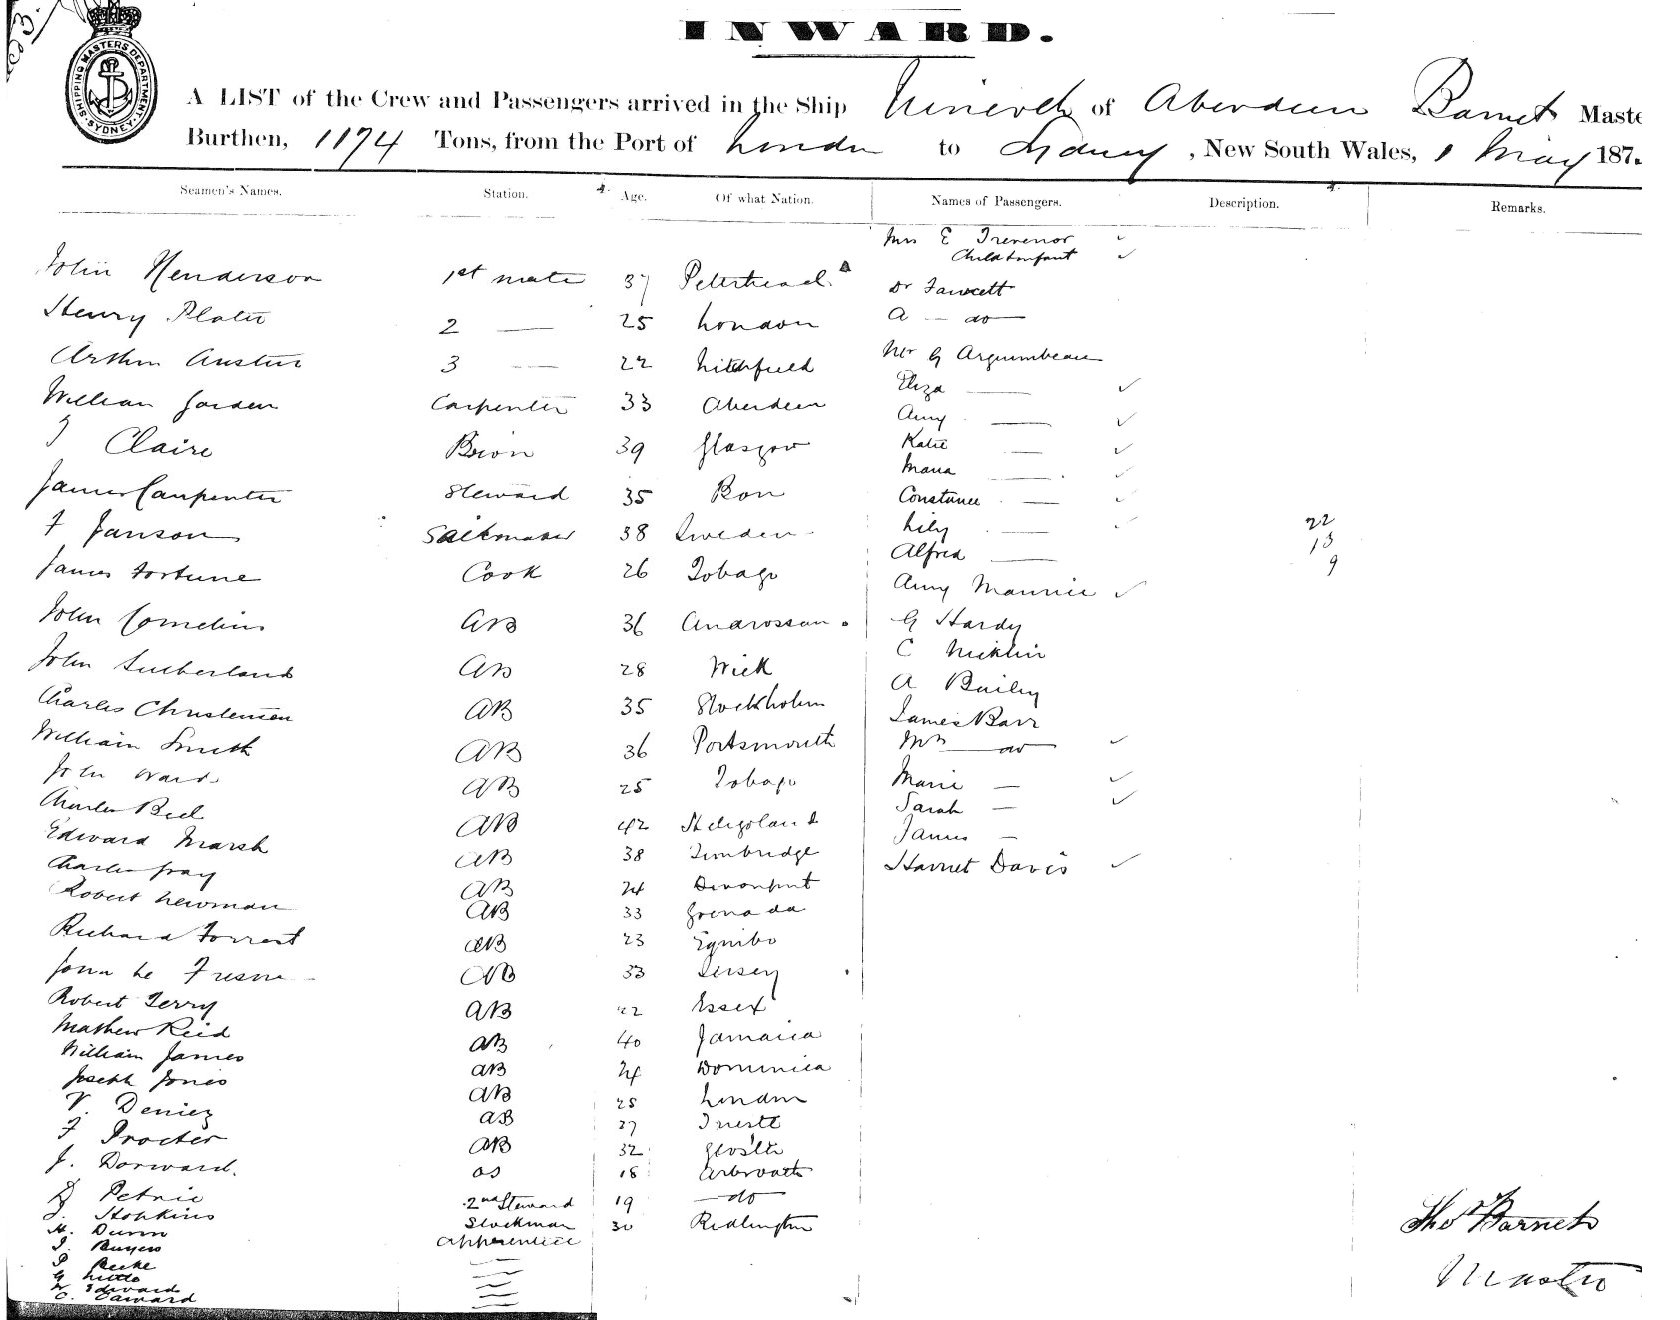 INWARD.
SHIPPING MASTERS DEPARTMENT. SYDNEY.
A LIST of the Crew and Passengers arrived in the Ship Nineveh of Aberdeen Barnet Maste
Burthen, 1174 Tons, from the Port of London to Sydney, New South Wales, 1 May 187
Seamen's Names. Station. Age. Of what Nation. Names of Passengers. Description. Remarks.
Mrs E Trevenor
Child & infant
John Henderson 1st mate 37 Peterhead Dr Fawcett
Henry Plater 2 — 25 London A — do —
Arthur Austin 3 — 22 Mr G Argumbeau
Eliza —
William Jorden Carpenter 33 Aberdeen Amy —
J Claire Bsion 39 Glasgow Katie —
Maria —
James Carpenter Steward 35 Bon Constance —
F Janson Sailmaker 38 Sweden Lily — 22
13
James Fortune Cook 26 Tobago Alfred — 9
Amy Maurice
John Cornelius AB 36 Androssan G Hardy
C Nicklin
John Sutherland AB 28 Wick A Bailey
Charles Christensen AB 35 Stockholm James Barr
William Smith AB 36 Portsmouth Mrs — do —
John Ward AB 25 Tobago Marie —
Sarah —
Charles Beel AB 42 Heligoland James —
Edward Marsh AB 38 Tunbridge Harriet Davis
Charles Gray AB 24 Devonport
Robert Newman AB 33 Grenada
Richard Forrest AB 23
John Le Fresne AB 33 Jersey
Robert Terry AB 22 Essex
Mathew Reid AB 40 Jamaica
William James AB 24 Dominica
Joseph Jones AB 25 London
V. Deniez AB 27 Trieste
F Procter AB 32 Glos'ter
J. Dorward. OS 18 Arbroath
D Petrie 2nd Steward 19 — do —
J. Hopkins Stockman 30 Ridlington
H. Dunn Apprentice
J. Buyers —
P Beeke —
G Little —
Edward —
C. Caward —
Thos Barnet
Master